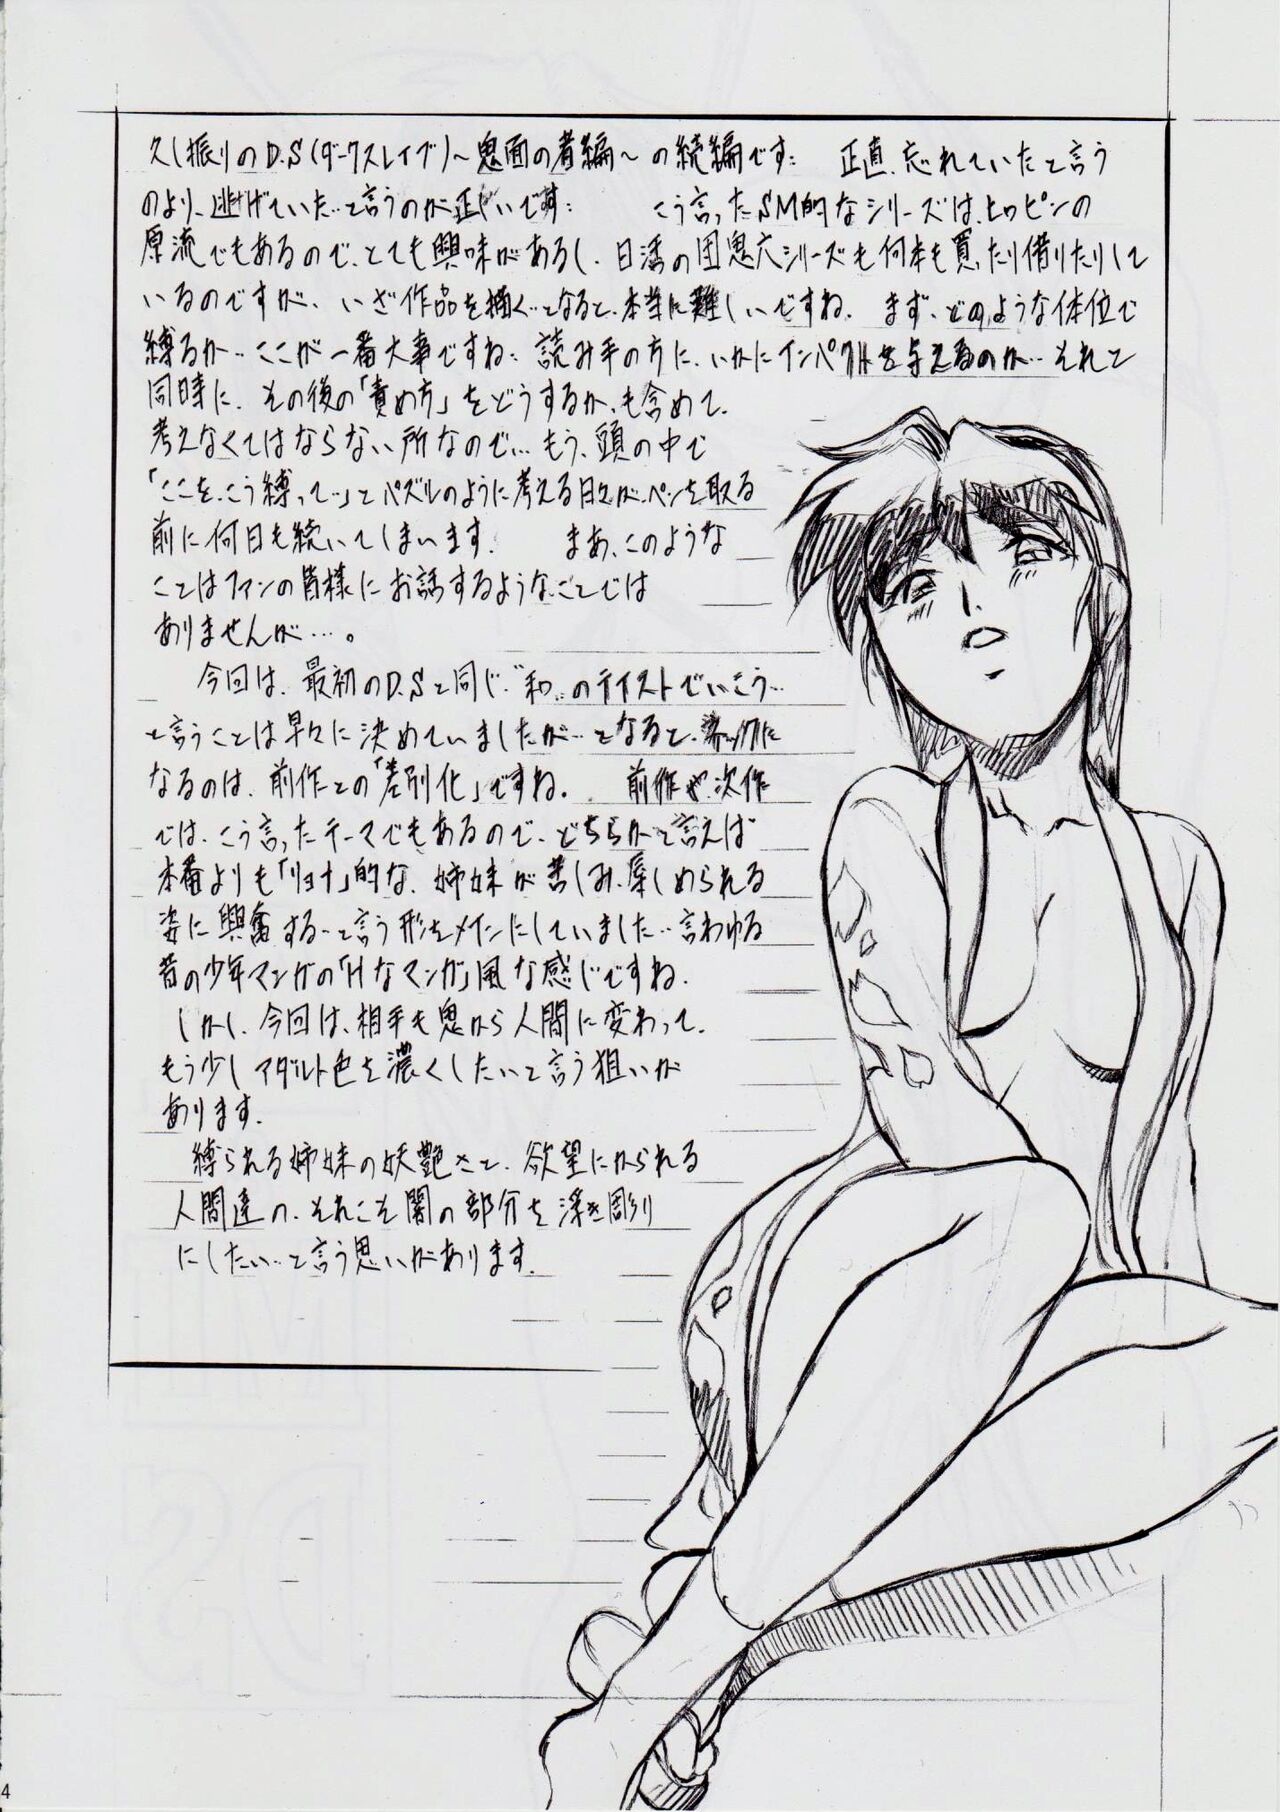 久し振りのD.S(ダークスレイブ)～鬼面の者編～の続編です… 正直、忘れていたと言う
のより、逃げていた…と言うのが正しいです… こう言ったSM的なシリーズは、ヒロピンの
原流でもあるので、とても興味があるし、日活の団鬼六シリーズも何本も買ったり借りたりして
いるのですが、いざ作品を描く…となると、本当に難しいですね。 まず、どのような体位で
縛るか…ここが一番大事ですね… 読み手の方に、いかにインパクトを与えるのか…それと
同時に、その後の「責め方」をどうするか、も含めて、
考えなくてはならない所なので… もう、頭の中で
「ここを、こう縛って…」とパズルのように考える日々がペンを取る
前に何日も続いてしまいます。 まあ、このような
ことはファンの皆様にお話するようなことでは
ありませんが…。
今回は、最初のD.Sと同じ“和”のテイストでいこう…
と言うことは早々に決めていましたが…となると、ネックに
なるのは、前作との「差別化」ですね。 前作や次作
では、こう言ったテーマでもあるので、どちらかと言えば
本番よりも「リョナ」的な、姉妹が苦しみ、辱しめられる
姿に興奮する…と言う形をメインにしていました…言わゆる
昔の少年マンガの「Hなマンガ」風な感じですね。
しかし、今回は、相手も鬼から人間に変わって、
もう少しアダルト色を濃くしたいと言う狙いが
あります。
縛られる姉妹の妖艶さと、欲望にかられる
人間達の、それこそ闇の部分を浮き彫り
にしたい…と言う思いがあります。
4